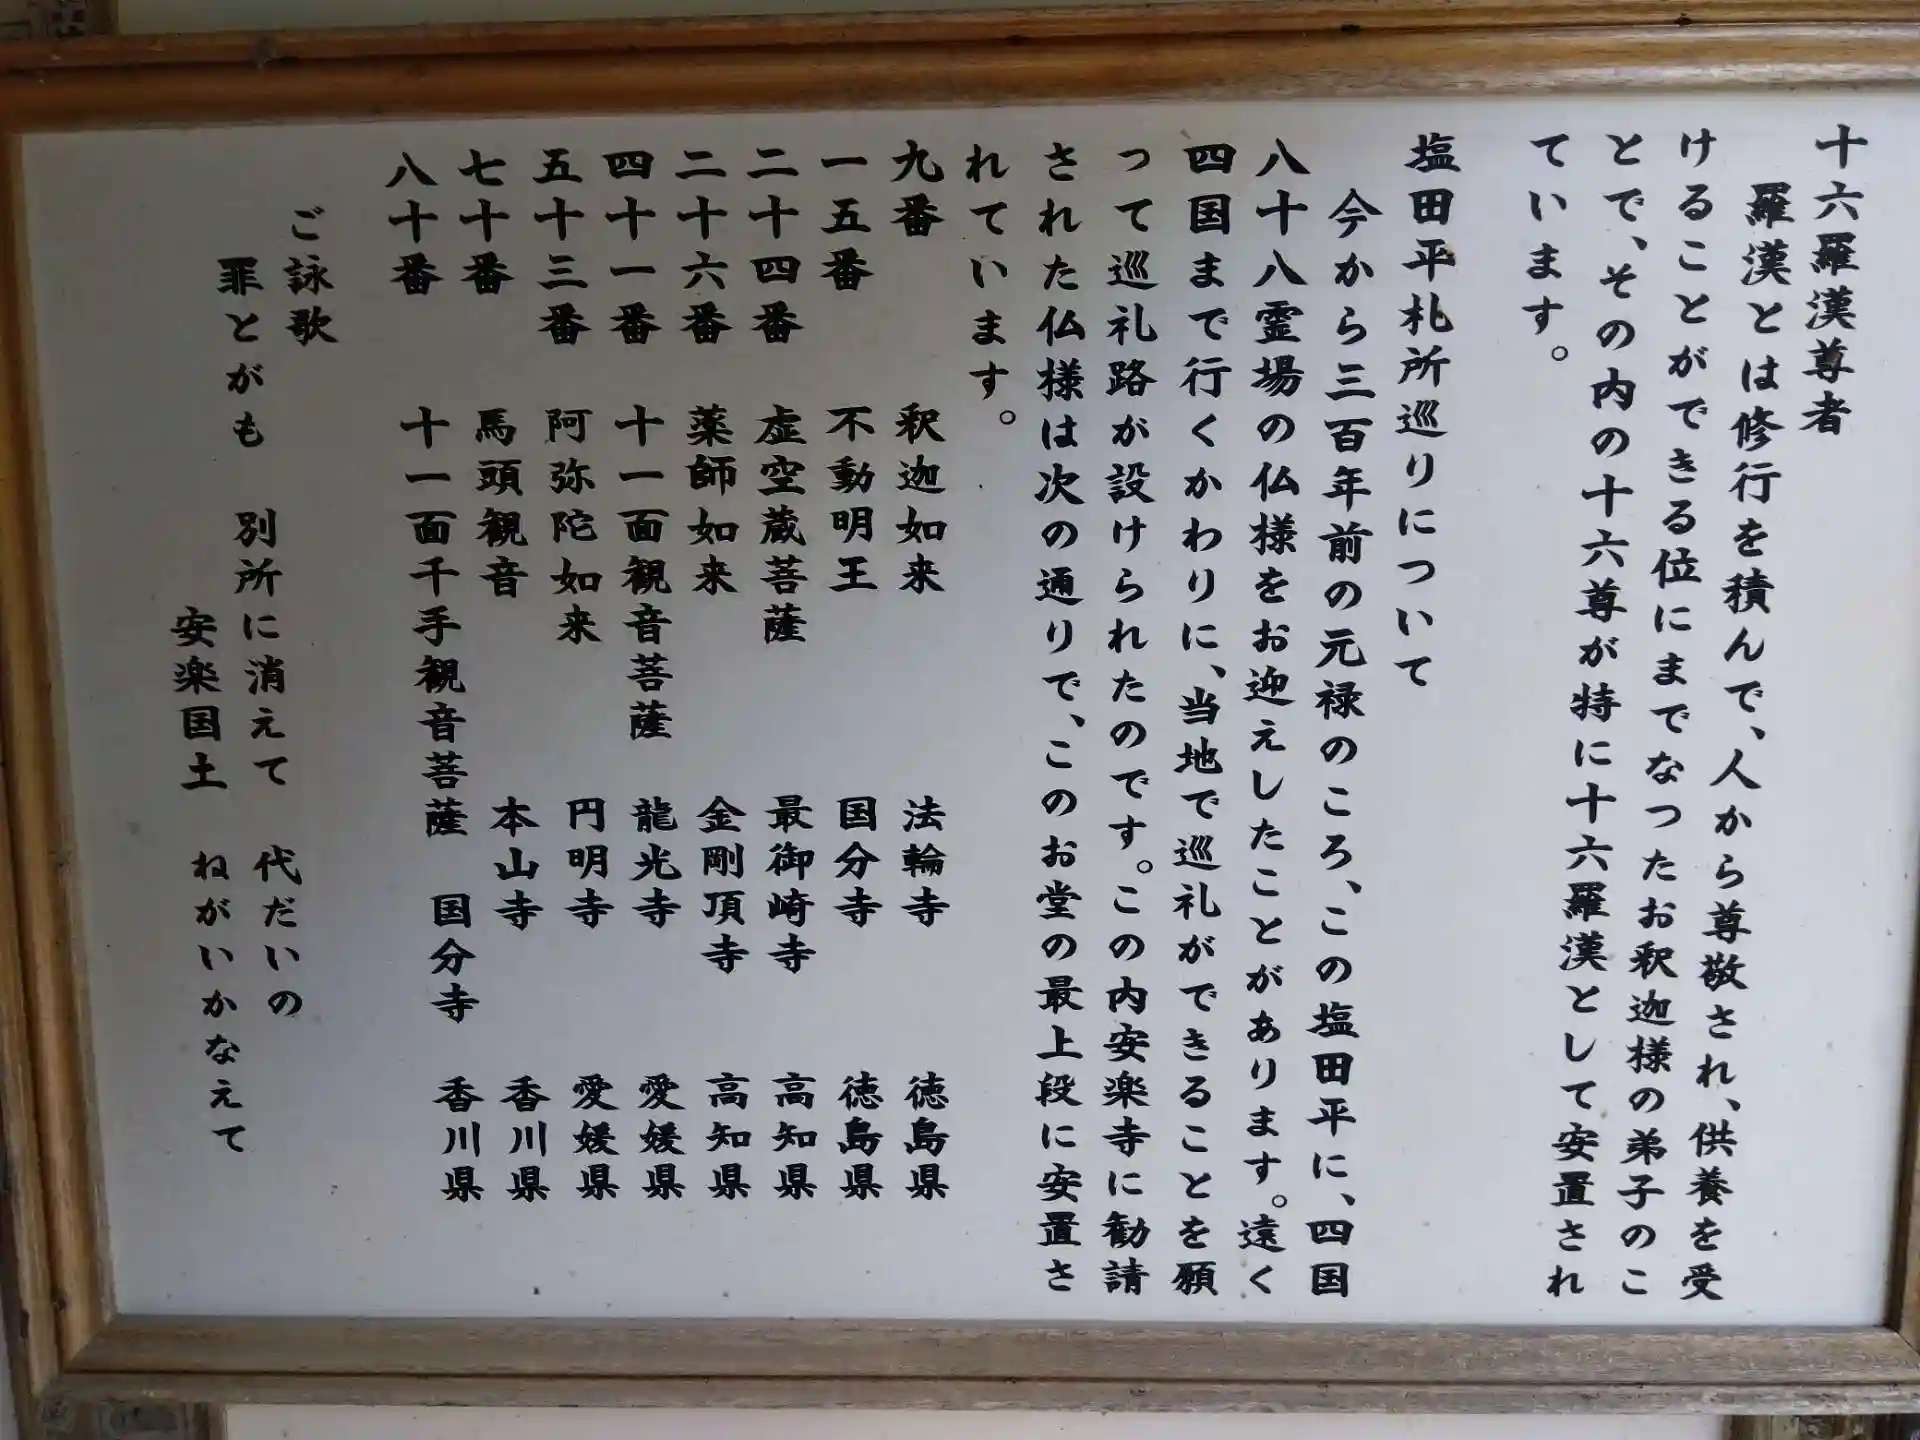 十六羅漢尊者
羅漢とは修行を積んで、人から尊敬され、供養を受
けることができる位にまでなつたお釈迦様の弟子のこ
とで、その内の十六尊が特に十六羅漢として安置され
ています。
塩田平札所巡りについて
今から三百年前の元禄のころ、この塩田平に、四国
八十八霊場の仏様をお迎えしたことがあります。遠く
四国まで行くかわりに、当地で巡礼ができることを願
って巡礼路が設けられたのです。この内安楽寺に勧請
された仏様は次の通りで、このお堂の最上段に安置さ
れています。
九番 釈迦如来 法輪寺 徳島県
一五番 不動明王 国分寺 徳島県
二十四番 虚空蔵菩薩 最御崎寺 高知県
二十六番 薬師如来 金剛頂寺 高知県
四十一番 十一面観音菩薩 龍光寺 愛媛県
五十三番 阿弥陀如来 円明寺 愛媛県
七十番 馬頭観音 本山寺 香川県
八十番 十一面千手観音菩薩 国分寺 香川県
ご詠歌
罪とがも 別所に消えて 代だいの
安楽国土 ねがいかなえて